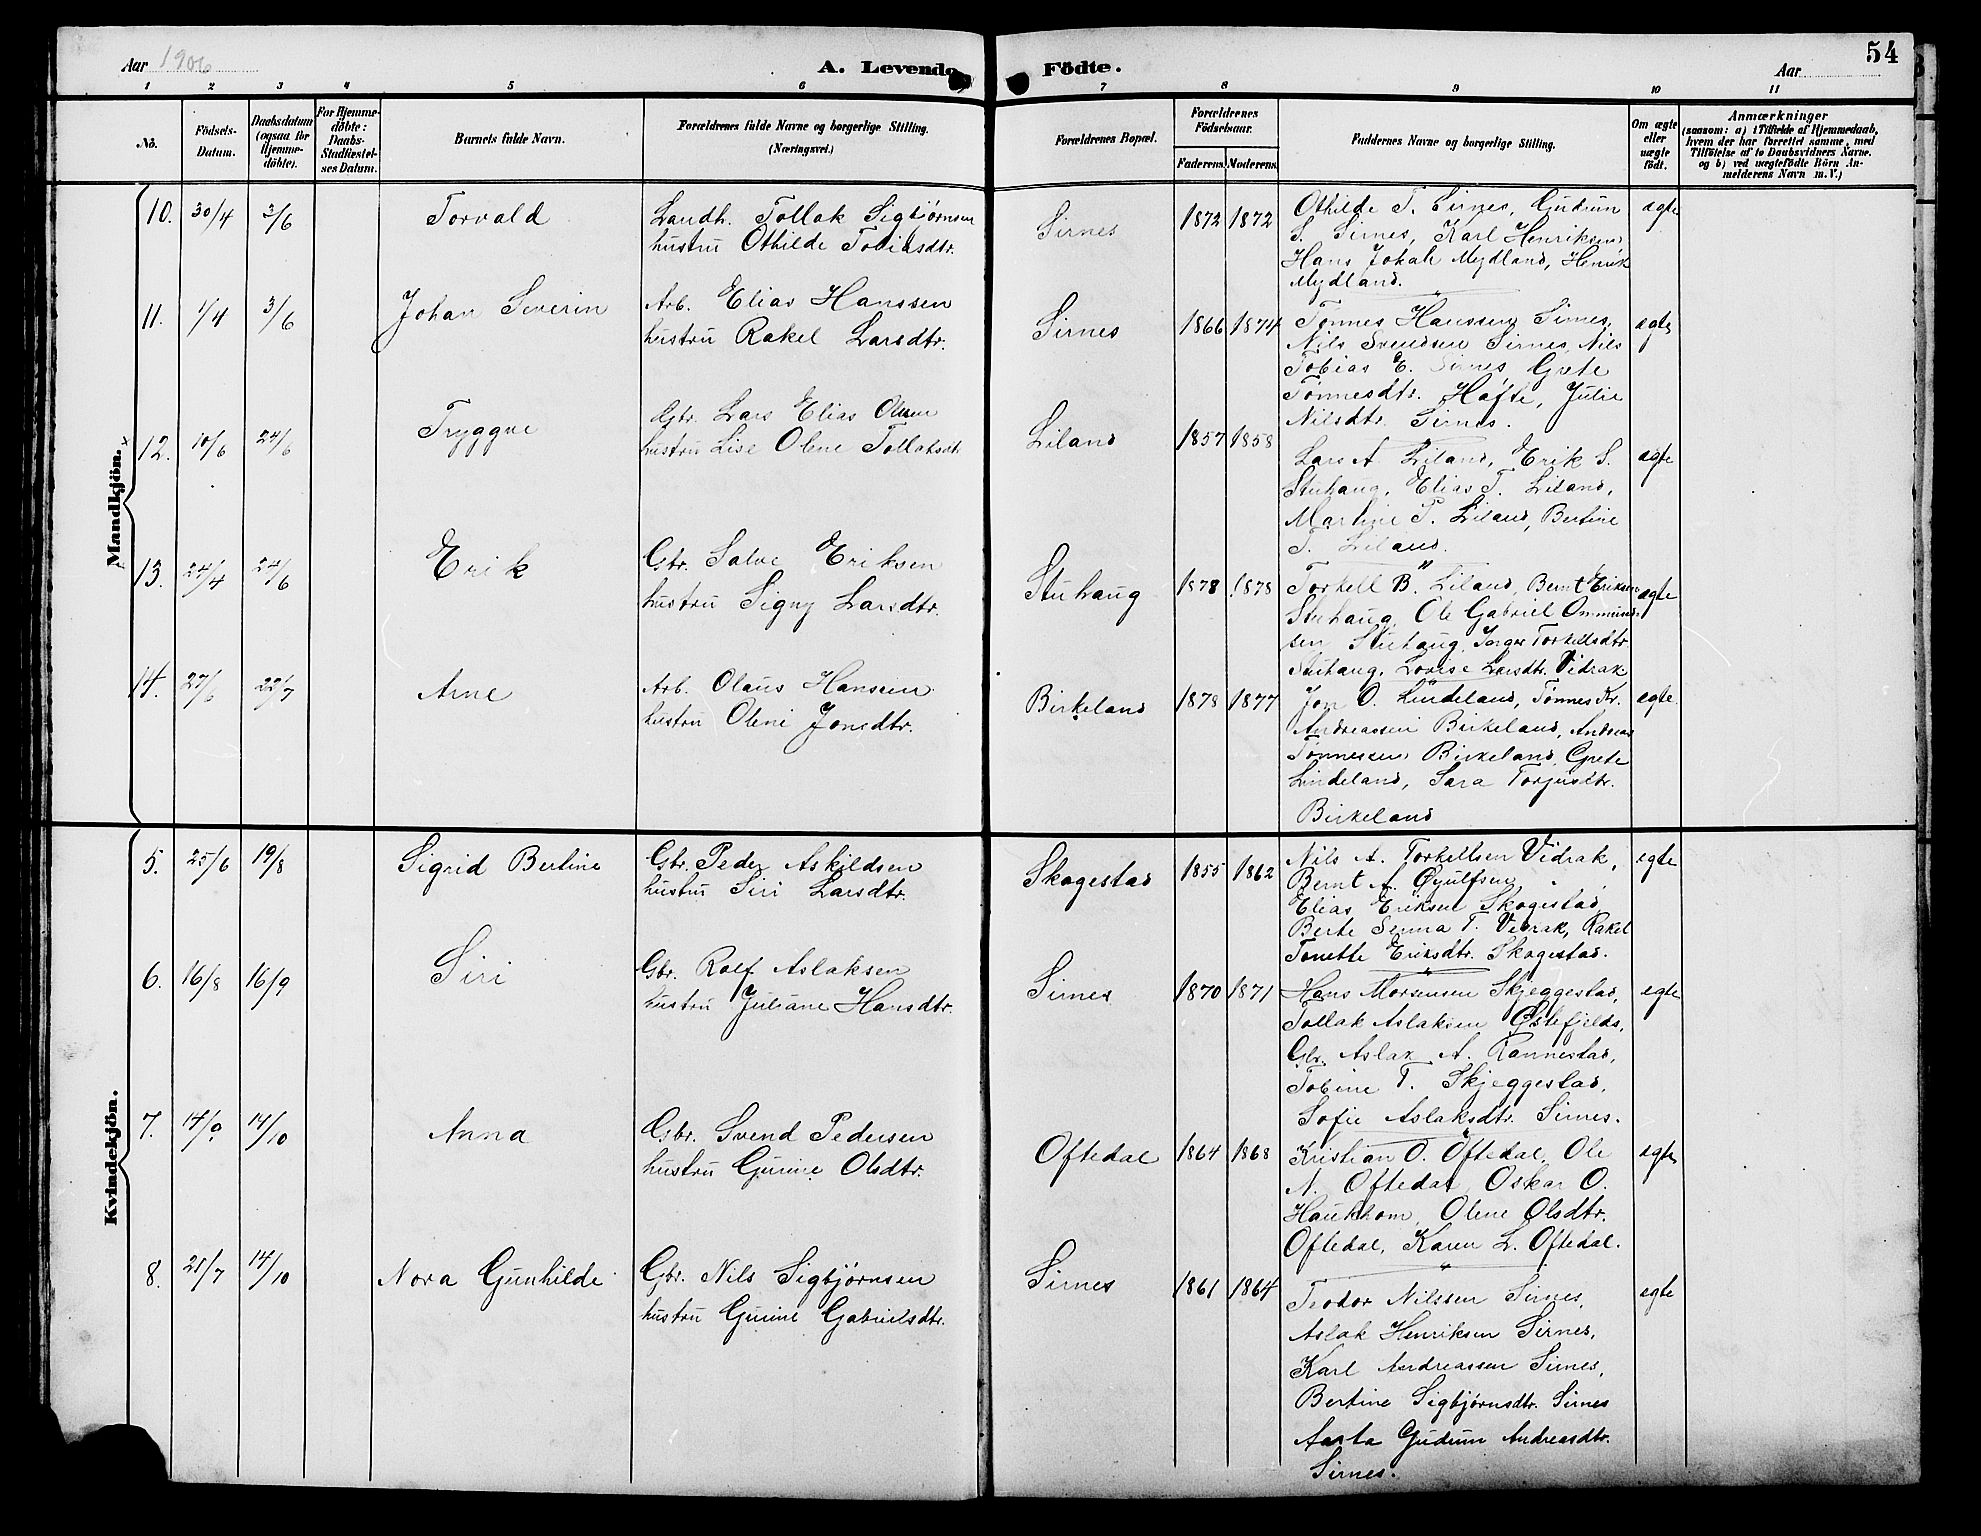 Aar 1906
A. Levende Födte.
Aar
54
1 2 3 4 5 6 7 8 9 10 11
No.
Födsels-Datum.
Daabsdatum (ogsaa for Hjemme-döbte).
For Hjemme-döbte: Daabs-Stadfæstel-ses Datum.
Barnets fulde Navn.
Forældrenes fulde Navne og borgerlige Stilling. (Næringsvei.)
Forældrenes Bopæl.
Forældrenes Födselsaar.
Faderens. Moderens.
Faddernes Navne og borgerlige Stilling.
Om ægte eller uægte født.
Anmærkninger
(saasom: a) i Tilfælde af Hjemmedaab,
hvem der har forrettet samme, med
Tilföielse af to Daabsvidners Navne.
og b) ved uægtefödte Börn An-
melderens Navn m. V.)
Mandkjön.
10. 30/4 3/6 Torvald
Landh. Tollak Sigbjørnsen
hustru Othilde Tobiasdtr.
Sirnes 1872 1872
Othilde T. Sirnes, Gudrun
S. Sirnes, Karl Henriksen,
Hans Jokah Mydland, Henrik
Mydland.
ægte
11. 1/4 3/6 Johan Severin
Arb. Elias Hanssen
hustru Rakel Larsdtr.
Sirnes 1866 1874
Tønnes Hanssen Sirnes,
Nils Svendsen Sirnes, Nils
Tobias E. Sirnes, Grete
Tønnesdtr. Hafte, Julie
Nilsdtr. Sirnes.
ægte
12. 10/6 24/6 Tryggve
Gbr. Lars Elias Olsen
hustru Lise Olene Tollaksdtr.
Liland 1857 1858
Lars A. Liland, Erik S.
Stuhaug, Elias T. Liland,
Martine T. Liland, Bertine
T. Liland.
ægte
13. 24/4 24/6 Erik
Gbr. Salve Eriksen
hustru Signy Larsdtr.
Stuhaug 1878 1878
Torkell B. Liland, Bernt Eriksen
Stuhaug, Ole Gabriel Ommund-
sen Stuhaug, Inger Torkellsdtr.
Stuhaug, Lovise Larsdtr. Vidrak
ægte
14. 27/6 22/7 Arne
Arb. Olaus Hansen
hustru Oleni Jonsdtr.
Birkeland 1878 1877
Jon O. Lindeland, Tønnes Kr.
Andreassen Birkeland, Andreas
Tønnessen Birkeland, Grete
Lindeland, Sara Torjusdtr.
Birkeland
ægte
Kvindekjön.
5. 25/6 19/8 Sigrid Bertine
Gbr. Peder Askildsen
hustru Siri Larsdtr.
Skogestad 1855 1862
Nils A. Torkellsen Vidrak,
Bernt A. Øyulfsen "
Elias Eriksen Skogestad,
Berte Serina T. Vidrak, Rakel
Tonette Eriksdtr. Skogestad.
egte
6. 16/8 16/9 Siri
Gbr. Rolf Aslaksen
hustru Juliane Hansdtr.
Sirnes 1870 1871
Hans Mortensen Skjeggestad,
Tollak Aslaksen Østefjelds,
Gbr. Aslak A. Rannestad,
Tobine T. Skjeggestad,
Sofie Aslaksdtr. Sirnes.
egte
7. 14/9 14/10 Anna
Gbr. Svend Pedersen
hustru Gurine Olsdtr.
Oftedal 1864 1868
Kristian O. Oftedal, Ole
N. Oftedal, Oskar O.
Haukhom, Olene Olsdtr.
Oftedal, Karen L. Oftedal.
egte
8. 21/7 14/10 Nora Gunhilde
Gbr. Nils Sigbjørnsen
hustru Gurine Gabrielsdtr.
Sirnes 1861 1864
Teodor Nilssen Sirnes,
Aslak Henriksen Sirnes,
Karl Andreassen Sirnes,
Bertine Sigbjørnsdtr. Sirnes
Aasta Gudrun Andreasdtr.
Sirnes.
egte